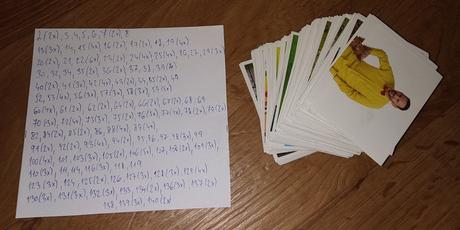 2(2x), 3, 4, 5, 6, 7(2x), 8
13(3x), 14, 15(4x), 16(2x), 17(2x), 18, 19(4x)
20(2x), 21, 22(6x), 23(2x), 24(4x), 25(4x), 26, 27, 29(3x)
30, 32, 34, 35(2x), 36(2x), 37, 38, 39(3x)
40(2x), 41(3x), 42(4x), 49
52, 53(4x), 56(3x), 57(3x), 58(3x), 59(5x)
60(4x), 61(2x), 62(2x), 64(2x), 66(2x), 67(2x), 68, 69
70(3x), 72(4x), 73(3x), 75(2x), 79(2x)
82, 84(2x), 85(2x), 86, 88(4x), 89(4x)
91(2x), 92(2x), 93(4x), 94(2x), 95, 96, 97, 98(3x), 99
100(4x), 101, 103(3x), 105(2x), 107(2x), 108(2x), 109(3x)
110(3x), 111, 114, 116(3x), 118, 119
123(3x), 124, 125(2x), 126, 127(3x), 128(3x), 129(4x)
130(3x), 131(3x), 132(3x), 133, 134(2x), 136(3x), 137(2x)
138, 139(3x), 140(2x)